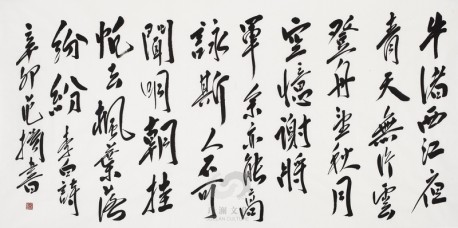 牛渚西江夜
青天無片雲
登舟望秋月
空憶謝將
軍余亦能高
詠斯人不可
聞明朝挂
帆去楓葉落
紛紛 李白詩
辛卯 書